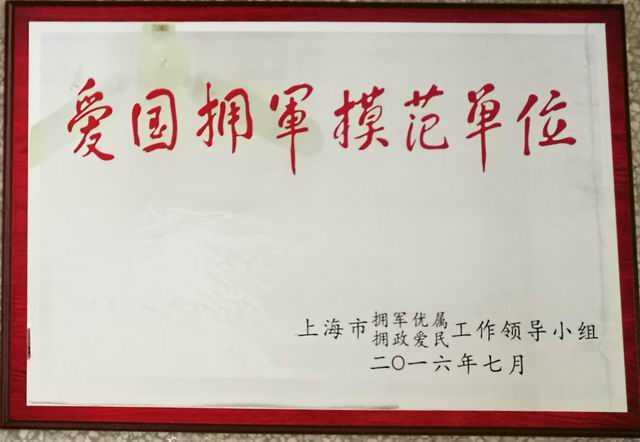 爱国拥軍模范单位
上海市拥军优属工作领导小组
拥政爱民
二〇一六年七月